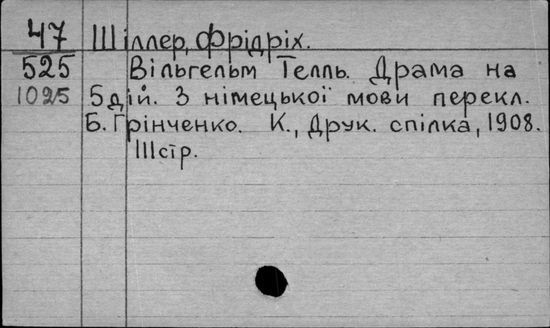 47 Шіллер, Фрідріх.
525 Вільгельм Телль. Драма на
1025 5 дій. З німецької мови перекл.
Б. Грінченко. К., Друк. спілка, 1908.
111 стр.